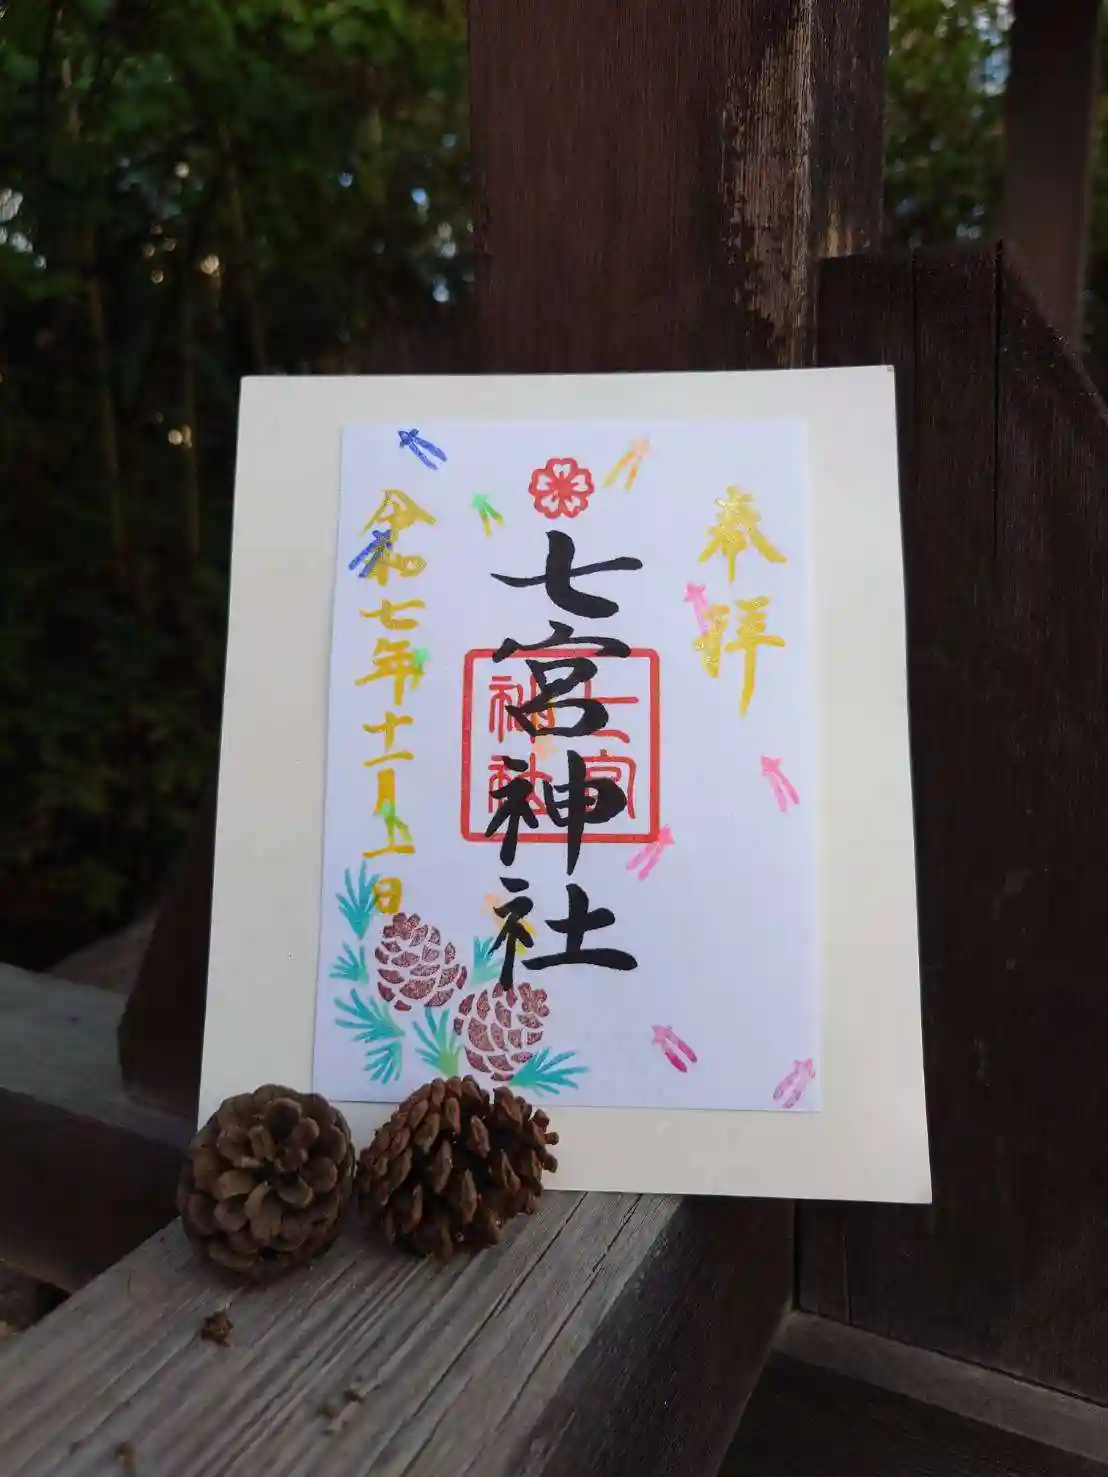 奉拝
七宮神社
七宮
神社
令和七年十一月十一日